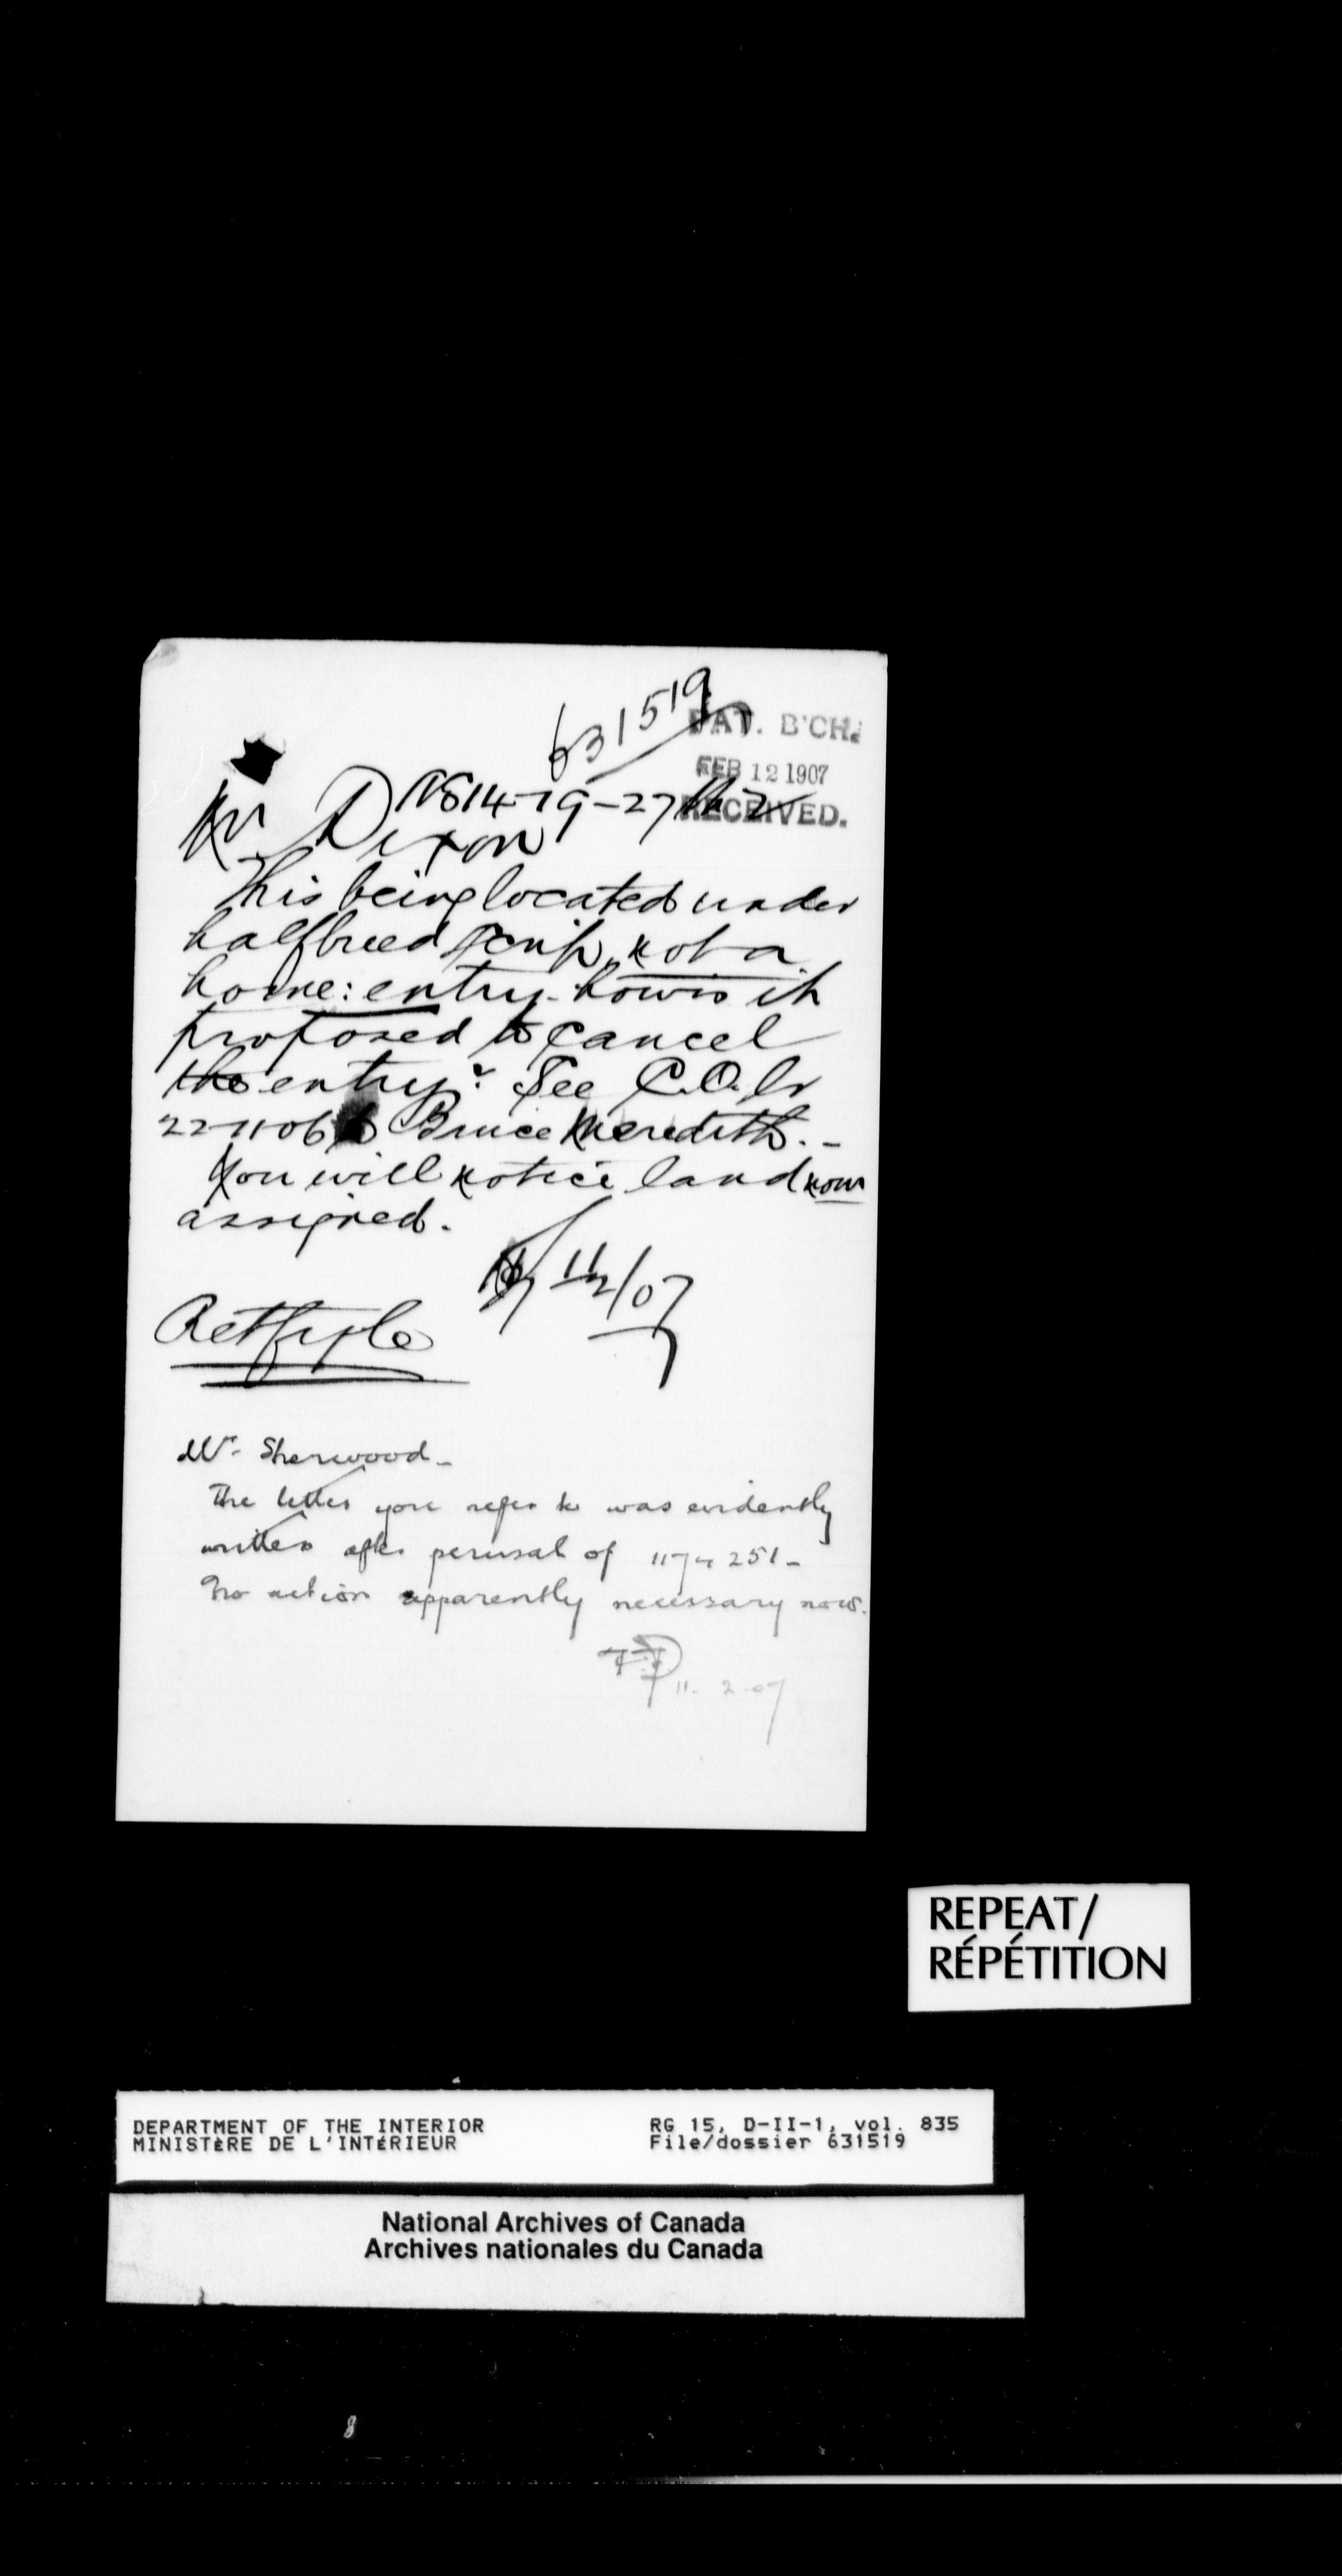 631519
PAT. B'CH.
FEB 12 1907
RECEIVED.
NE 14-19-27 W 2
Mr Dixon
This being located under
halfbreed scrip, not a
home: entry. how is it
proposed to cancel
the entry? See C.O. lr
22-11-06 to Bruce Meredith. -
You will notice land now
assigned.
11/2/07
Ret file
Mr. Sherwood -
The letter you refer to was evidently
written after perusal of 1174251 -
No action apparently necessary now.
11-2-07
REPEAT/
RÉPÉTITION
DEPARTMENT OF THE INTERIOR
MINISTÈRE DE L'INTÉRIEUR
RG 15, D-II-1, vol. 835
File/dossier 631519
National Archives of Canada
Archives nationales du Canada
8